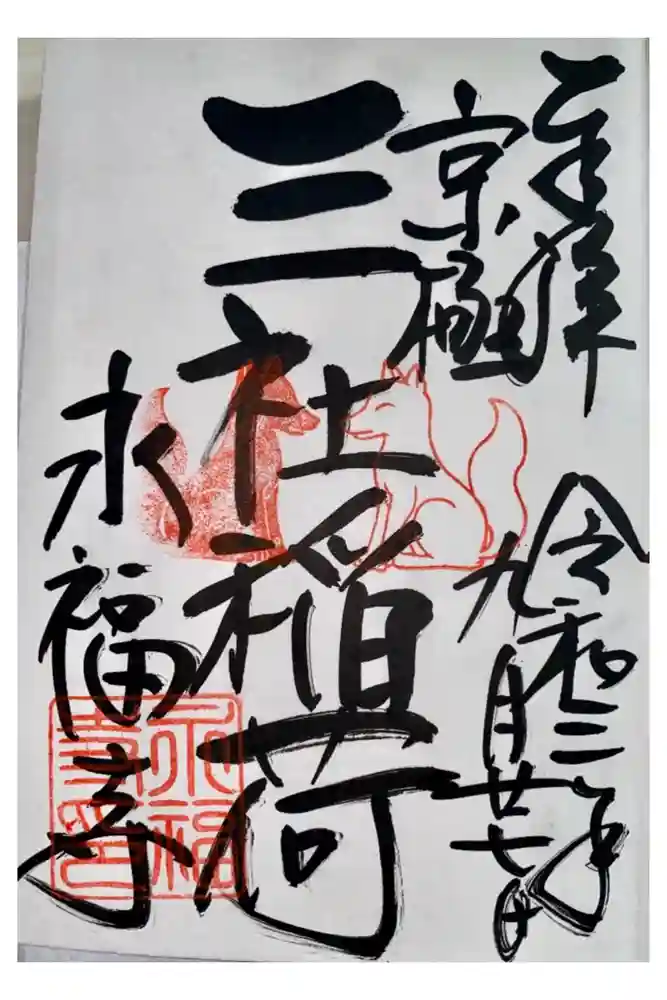 奉拝
令和二年
九月廿七日
京極
三社稲荷
永福寺
永福
寺印